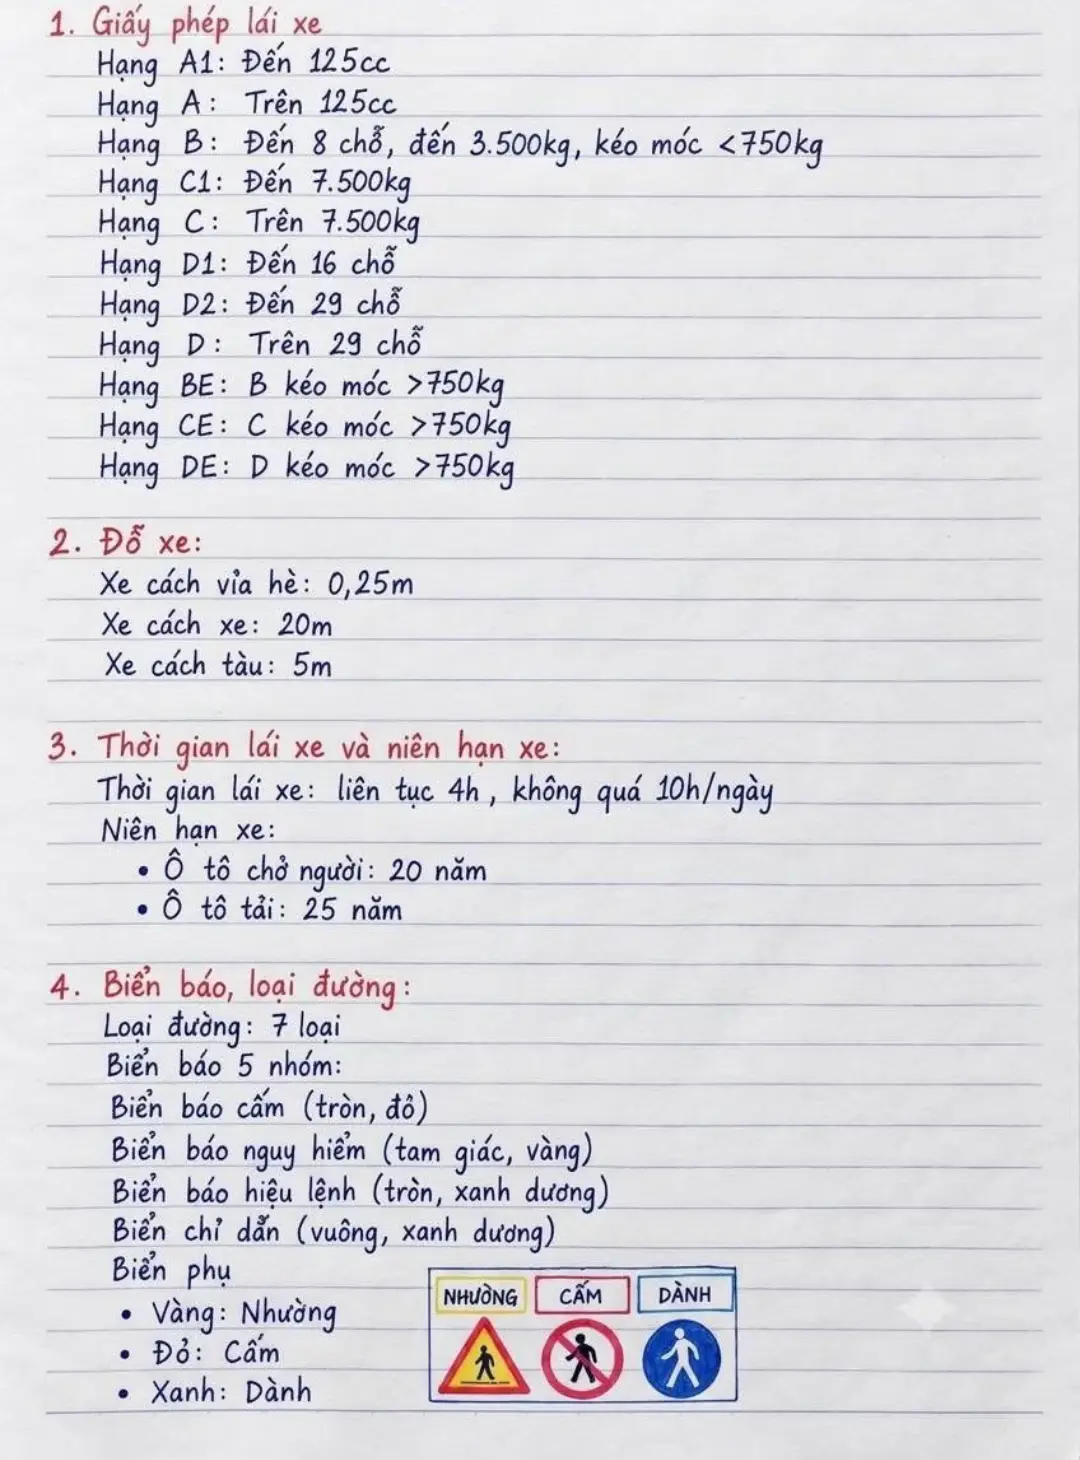 1. Giấy phép lái xe
Hạng A1: Đến 125cc
Hạng A: Trên 125cc
Hạng B: Đến 8 chỗ, đến 3.500kg, kéo móc <750kg
Hạng C1: Đến 7.500kg
Hạng C: Trên 7.500kg
Hạng D1: Đến 16 chỗ
Hạng D2: Đến 29 chỗ
Hạng D: Trên 29 chỗ
Hạng BE: B kéo móc >750kg
Hạng CE: C kéo móc >750kg
Hạng DE: D kéo móc >750kg
2. Đỗ xe:
Xe cách vỉa hè: 0,25m
Xe cách xe: 20m
Xe cách tàu: 5m
3. Thời gian lái xe và niên hạn xe:
Thời gian lái xe: liên tục 4h, không quá 10h/ngày
Niên hạn xe:
• Ô tô chở người: 20 năm
• Ô tô tải: 25 năm
4. Biển báo, loại đường:
Loại đường: 7 loại
Biển báo 5 nhóm:
Biển báo cấm (tròn, đỏ)
Biển báo nguy hiểm (tam giác, vàng)
Biển báo hiệu lệnh (tròn, xanh dương)
Biển chỉ dẫn (vuông, xanh dương)
Biển phụ
• Vàng: Nhường
• Đỏ: Cấm
• Xanh: Dành
NHƯỜNG CẤM DÀNH